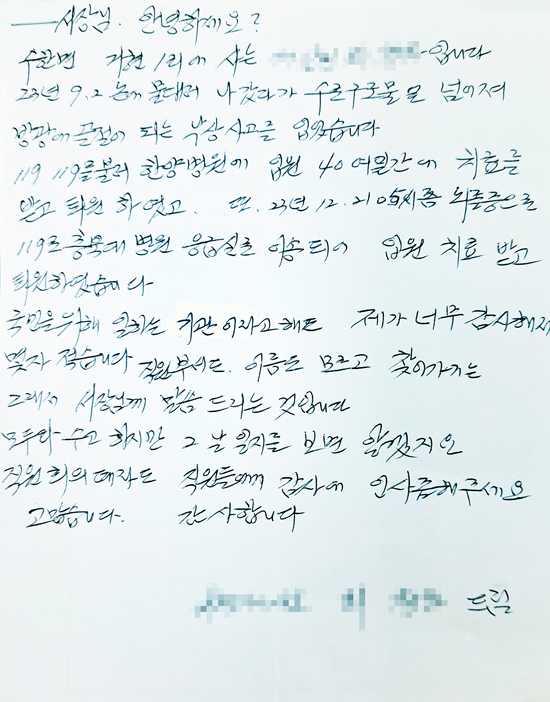 서장님. 안녕하세요?
수한면 거현 1리에 사는 입니다
23년 9.2 논에 물대러 나갔다가 수로구로물로 넘어져
방광에 골절이 되는 부상사고를 입었습니다
119 119를불러 한양병원에 입원 40여일간에 치료를
받고 퇴원 하였고. 또. 23년 12. 21 05시쯤 뇌졸증으로
119로 충북대 병원 응급실로 이송되어 입원 치료 받고
퇴원하였습니다
국민을위해 일하는 기관이라고해도 제가 너무 감사해서
몇자 적습니다 직원부서도. 이름도 모르고 찾아가기는
그래서 서장님께 말씀 드리는 것입니다
모두다 수고 하지만 그 날 일지를 보면 알겠지요
직원 회의 때라도 직원들에께 감사에 인사좀해주세요
고맙습니다. 감사합니다
이 드림